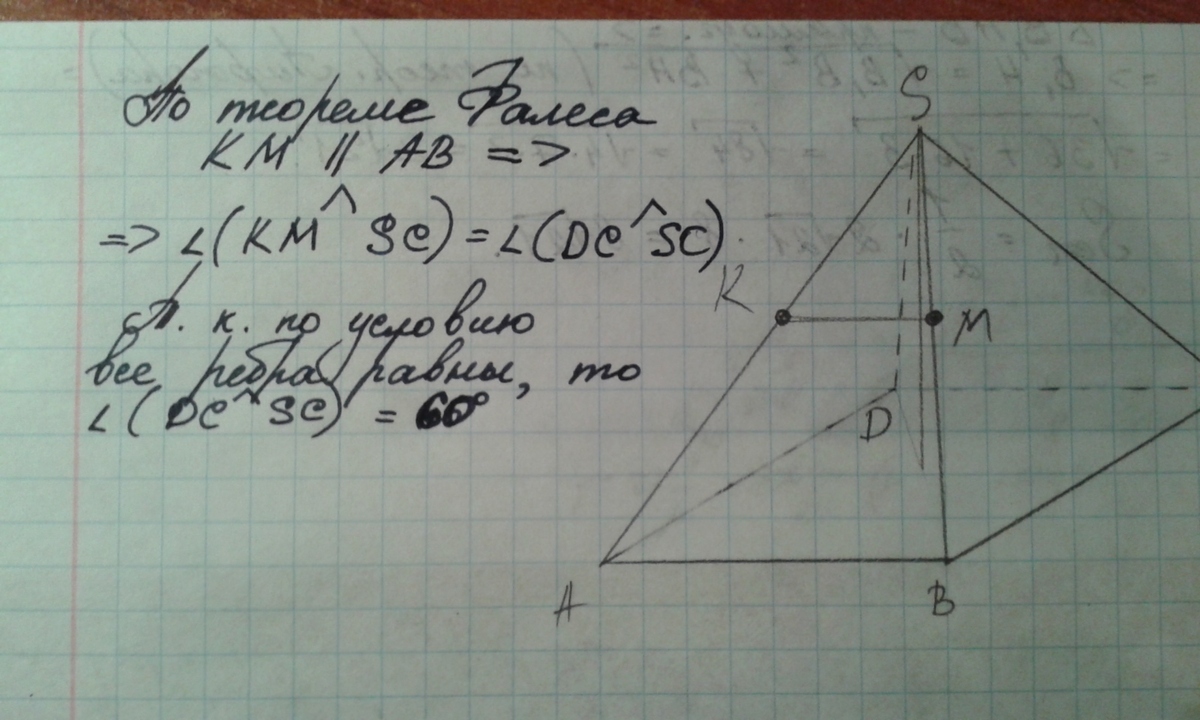 По теореме Фалеса
KM || AB =>
=> ∠(KM^SC) = ∠(DC^SC).
Т. к. по условию
все ребра равны, то
∠(DC^SC) = 60°
S
K
M
D
A
B